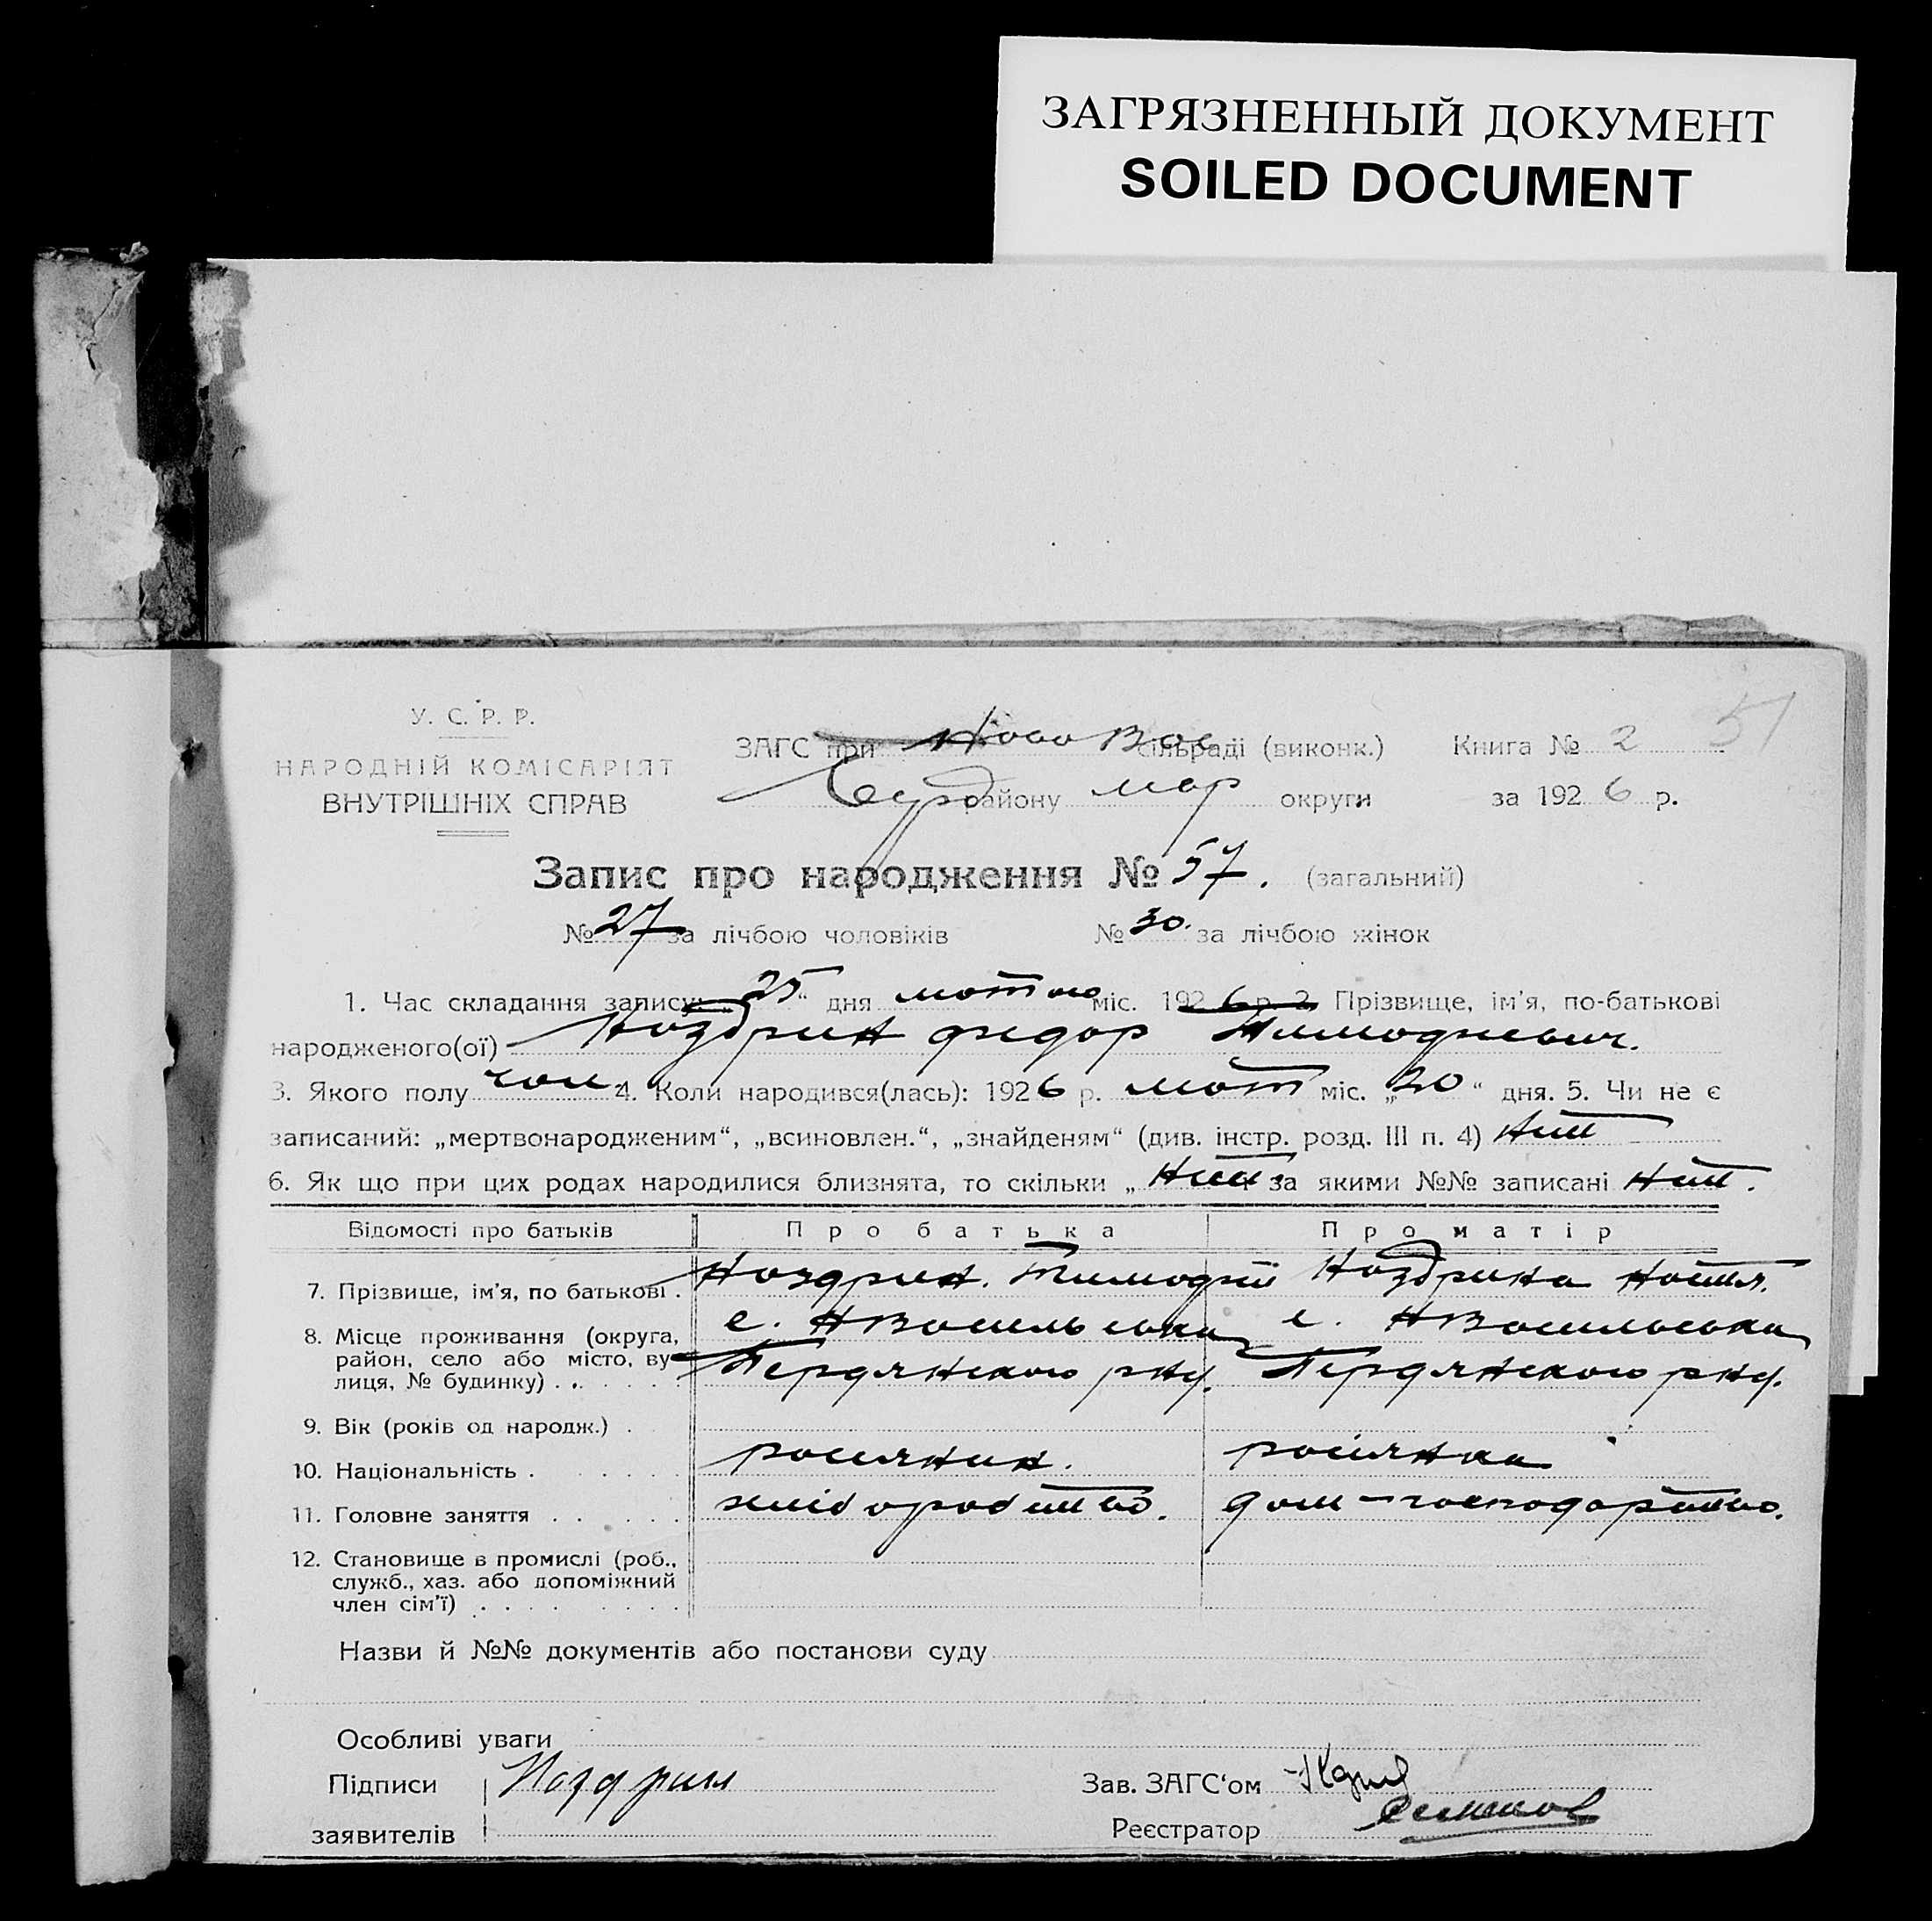 ЗАГРЯЗНЕННЫЙ ДОКУМЕНТ
SOILED DOCUMENT
51
У. С. Р. Р.
НАРОДНІЙ КОМІСАРІЯТ
ВНУТРІШНІХ СПРАВ
ЗАГС при Ново Вас сільраді (виконк.) Книга № 2
району мар округи за 1926 р.
Запис про народження № 57. (загальний)
№ 27 за лічбою чоловіків № 30. за лічбою жінок
1. Час складання запису: „25“ дня лютого міс. 1926 р. 2. Прізвище, ім'я, по-батькові
народженого(ої) Ноздрин Федор Тимофієвич.
3. Якого полу чол. 4. Коли народився(лась): 1926 р. лют міс. „20“ дня. 5. Чи не є
записаний: „мертвонародженим“, „всиновлен.“, „знайденям“ (див. інстр. розд. III п. 4) Ніт
6. Як що при цих родах народилися близнята, то скільки „ Ніт. за якими №№ записані Ніт.
Відомості про батьків Про батька Про матір
7. Прізвище, ім'я, по батькові . Ноздрин. Тимофій Ноздрина
8. Місце проживання (округа, район, село або місто, вулиця, № будинку) . . с. НВасильевка с. НВасильевка
Бердянского рну. Бердянского рну.
9. Вік (років од народж.) .
10. Національність . росиянин. росіянка
11. Головне заняття . . хліборобство. дом-господарство.
12. Становище в промислі (роб.,
служб., хаз. або допоміжний
член сім'ї)
Назви й №№ документів або постанови суду
Особливі уваги
Підписи Ноздрин Зав. ЗАГС'ом
заявителів Реєстратор